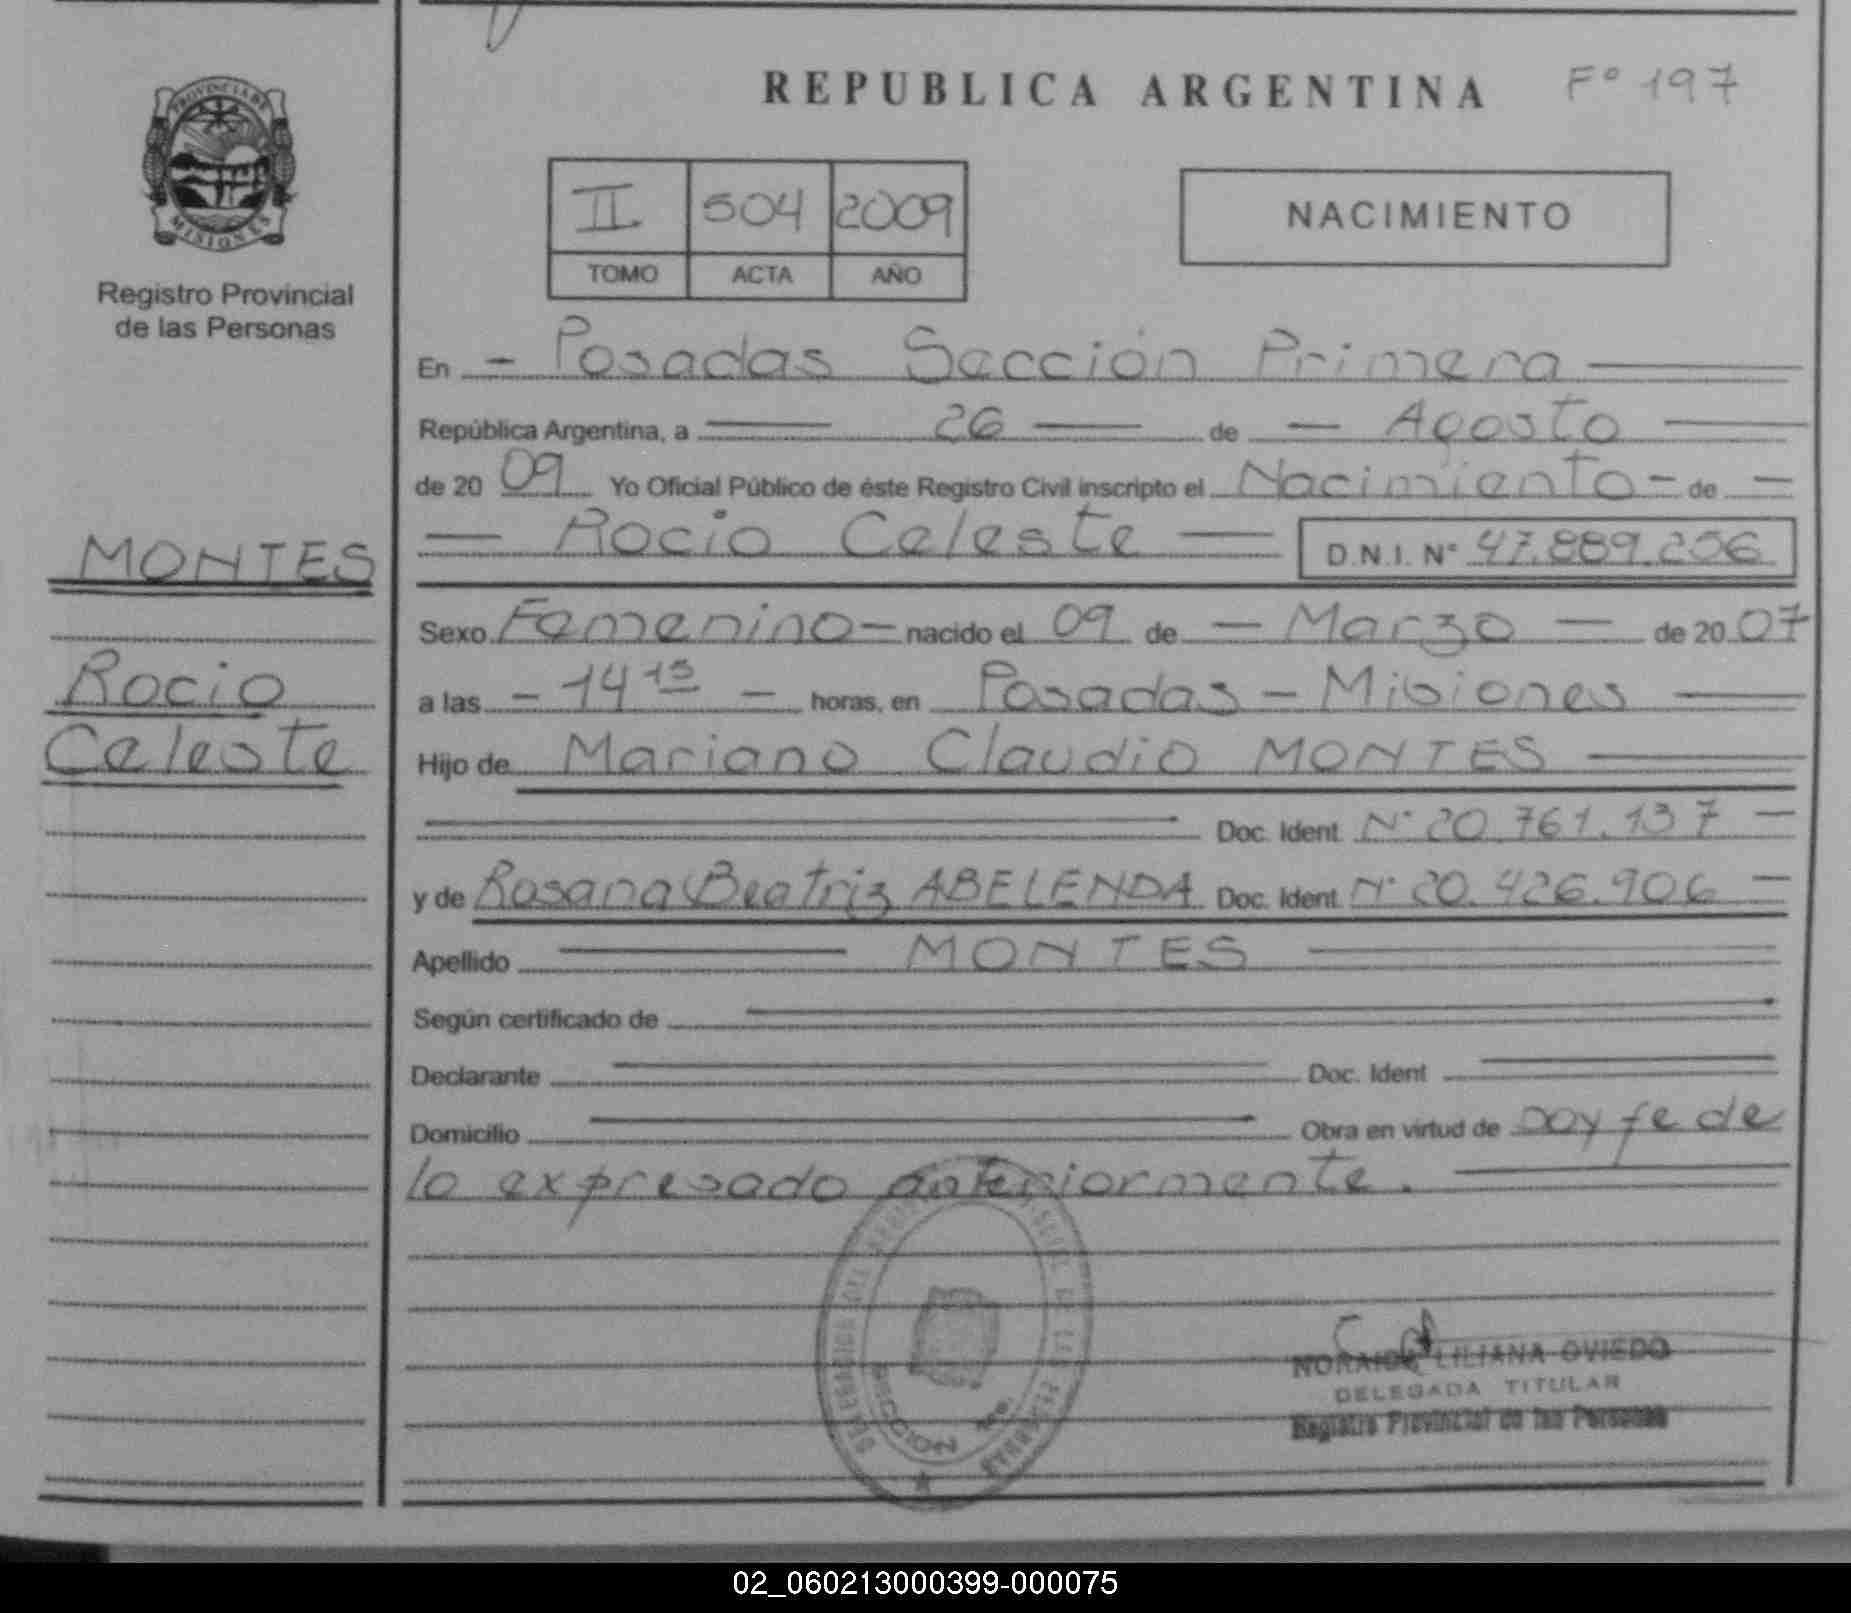 REPUBLICA ARGENTINA Fº 197
PROVINCIA DE
MISIONES
Registro Provincial
de las Personas
II 504 2009
TOMO ACTA AÑO
NACIMIENTO
En - Posadas Sección Primera
República Argentina, a 26 de - Agosto
de 20 09 Yo Oficial Público de éste Registro Civil inscripto el Nacimiento - de -
- Rocio Celeste - D.N.I. Nº 47.889.256
MONTES
Rocio
Celeste
Sexo Femenino - nacido el 09 de - Marzo - de 20 07
a las - 14 15 - horas, en Posadas - Misiones
Hijo de Mariano Claudio MONTES
Doc. Ident Nº 20.761.137 -
y de Rosana Beatriz ABELENDA Doc. Ident Nº 20.426.906 -
Apellido MONTES
Según certificado de
Declarante Doc. Ident
Domicilio Obra en virtud de Doy fe de
lo expresado anteriormente.
SECCION 1ra.
NORAIDA LILIANA OVIEDO
DELEGADA TITULAR
Registro Provincial de las Personas
02_060213000399-000075